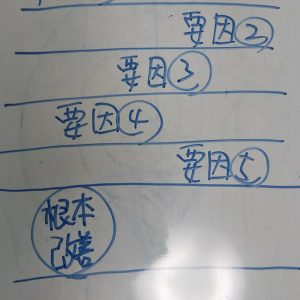 要因②
要因③
要因④
要因⑤
根本
改善